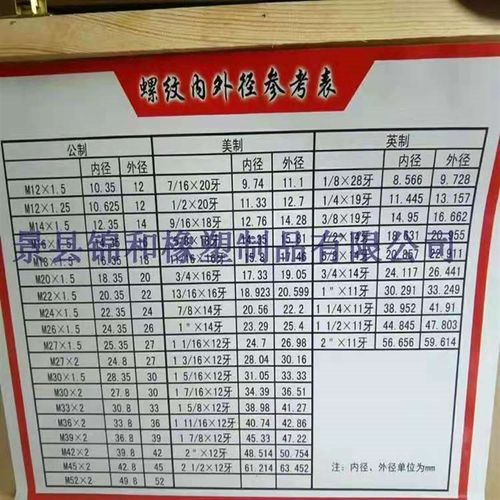 螺纹内外径参考表
公制 美制 英制
内径 外径 内径 外径 内径 外径
M12×1.5 10.35 12 7/16×20牙 9.74 11.1 1/8×28牙 8.566 9.728
M12×1.25 10.625 12 1/2×20牙 11.33 12.7 1/4×19牙 11.445 13.157
M14×1.5 12.35 14 9/16×18牙 12.76 14.28 3/8×19牙 14.95 16.662
景县锦和橡塑制品有限公司
20.955
22.911
M20×1.5 18.35 20 3/4×16牙 17.33 19.05 3/4×14牙 24.117 26.441
M22×1.5 20.35 22 13/16×16牙 18.923 20.599 1"×11牙 30.291 33.249
M24×1.5 22.35 24 7/8×14牙 20.56 22.2 1 1/4×11牙 38.952 41.91
M26×1.5 24.35 26 1"×14牙 23.29 25.4 1 1/2×11牙 44.845 47.803
M27×1.5 25.35 27 1 1/16×12牙 24.7 26.98 2"×11牙 56.656 59.614
M27×2 24.8 27 1 3/16×12牙 28.04 30.16
M30×1.5 28.35 30 1 5/16×12牙 31.28 33.3
M30×2 27.8 30 1 7/16×12牙 34.38 36.51
M33×2 30.8 33 1 5/8×12牙 38.98 41.27
M36×2 33.8 36 1 11/16×12牙 40.74 42.86
M39×2 36.8 39 1 7/8×12牙 45.33 47.22
M42×2 39.8 42 2"×12牙 48.514 50.754
M45×2 42.8 45 2 1/2×12牙 61.214 63.452
M52×2 49.8 52
注：内径、外径单位为mm